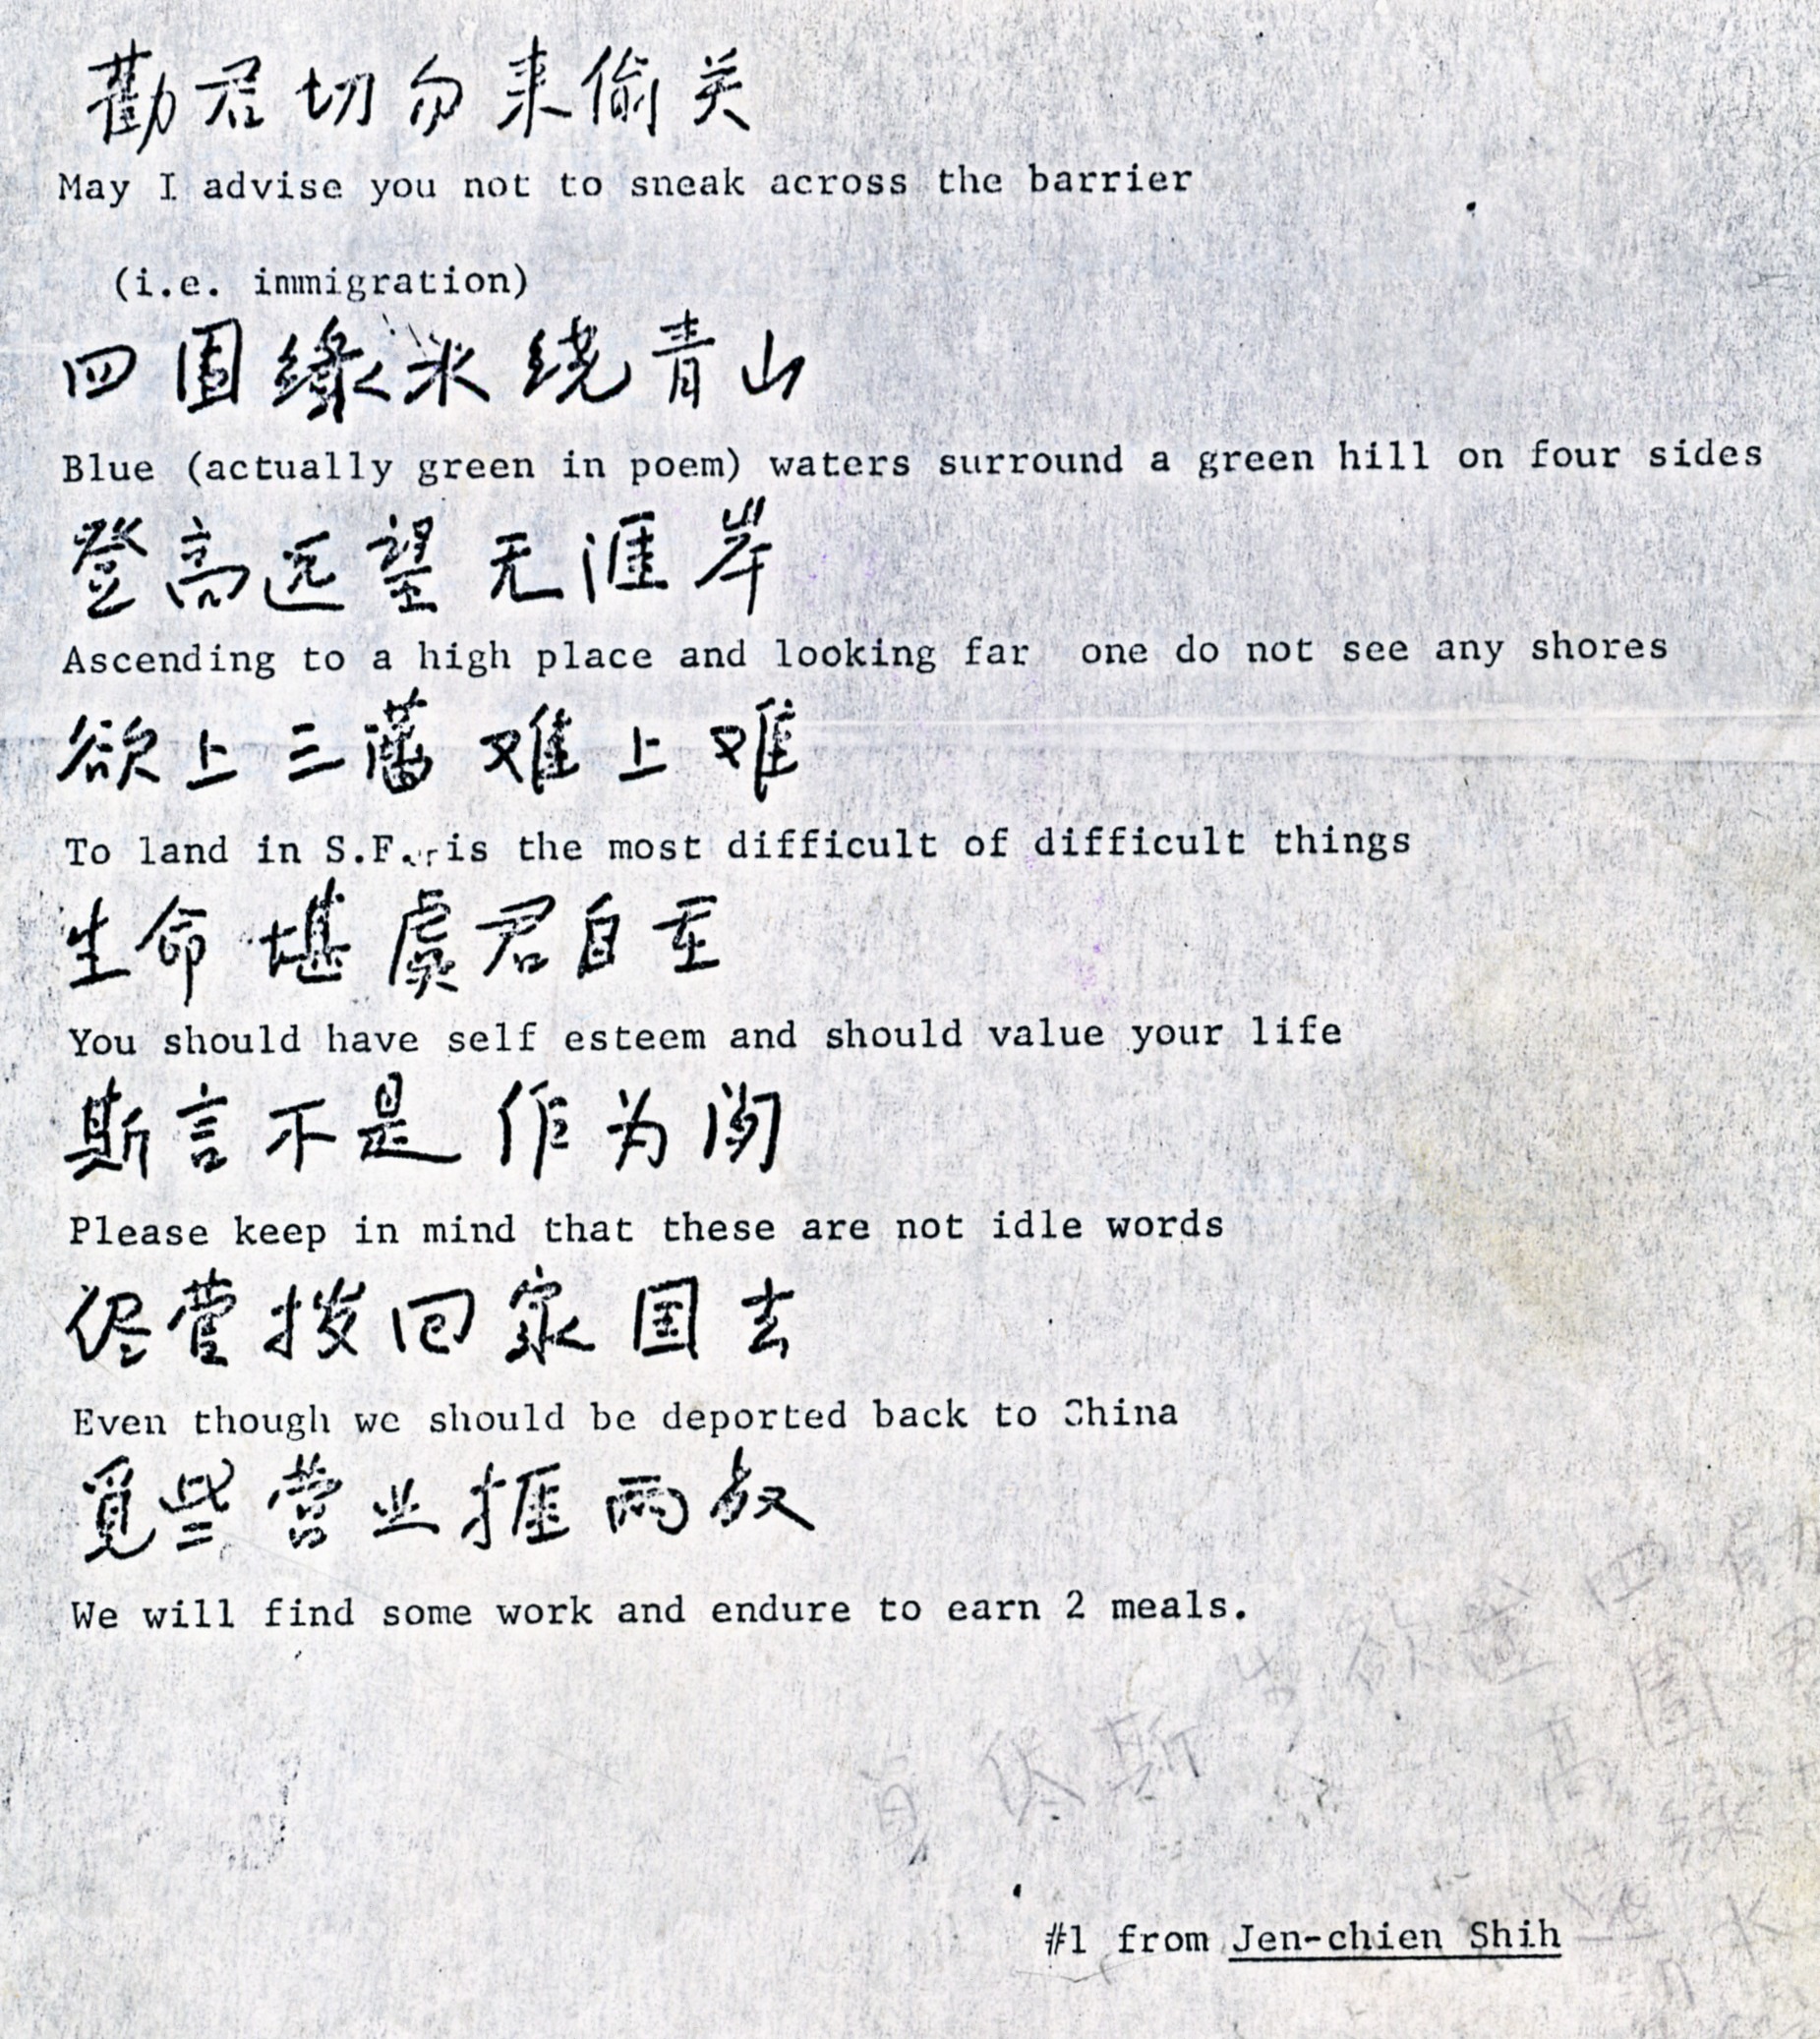 勸君切勿来偷关
May I advise you not to sneak across the barrier
(i.e. immigration)
四围綠水绕青山
Blue (actually green in poem) waters surround a green hill on four sides
登高远望无涯岸
Ascending to a high place and looking far one do not see any shores
欲上三藩难上难
To land in S.F. is the most difficult of difficult things
生命堪虞君自重
You should have self esteem and should value your life
斯言不是作为闲
Please keep in mind that these are not idle words
侭管拨回家国去
Even though we should be deported back to China
覓些营业捱两
We will find some work and endure to earn 2 meals.
#1 from Jen-chien Shih